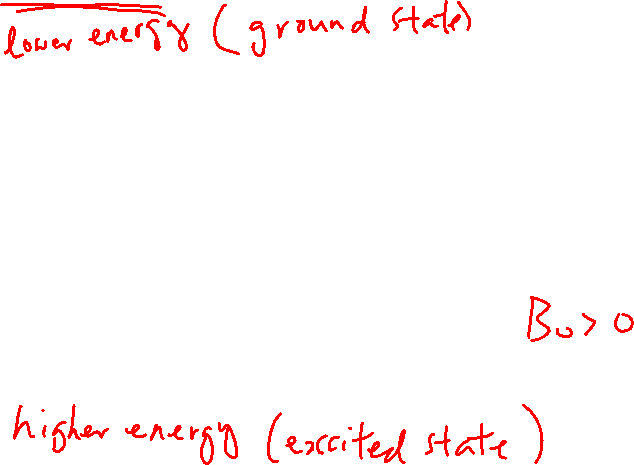 lower energy (ground state)
B₀ > 0
higher energy (exccited state)